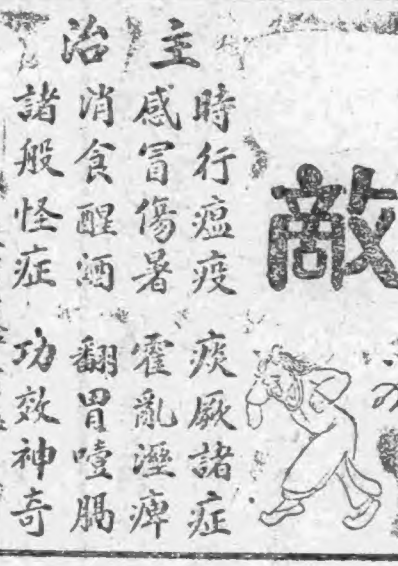 敵
主治
時行瘟疫 痰厥諸症
感冒傷暑 霍亂溼痺
消食醒酒 翻胃噎膈
諸般怪症 功效神奇